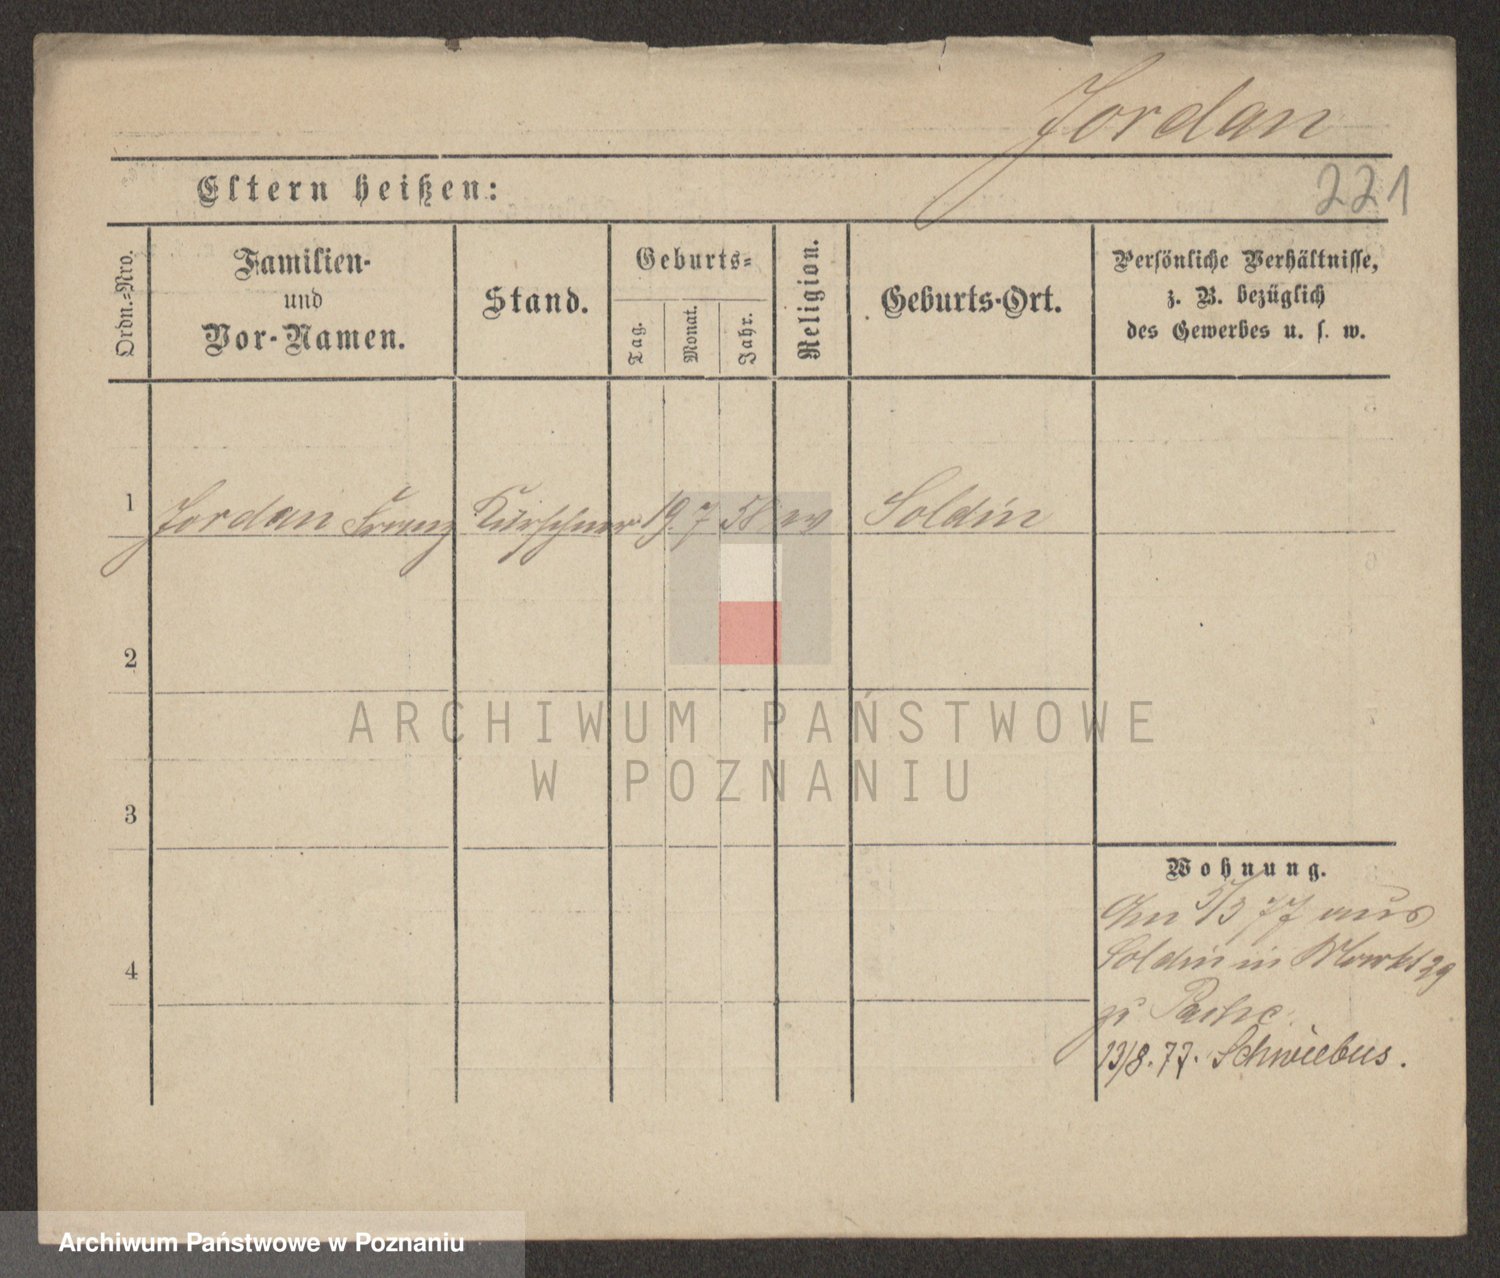 Jordan
221
Eltern heißen:
Ordn.=Nro.
Familien-
und
Vor-Namen.
Stand.
Geburts=
Tag.
Monat.
Jahr.
Religion.
Geburts-Ort.
Persönliche Verhältnisse,
z. B. bezüglich
des Gewerbes u. s. w.
1 Jordan Franz Kürschner 19 7 58 ev Soldin
2
3
4
Wohnung.
Am 5/3 77 aus
Soldin in Markt 39
zu
13/8. 77. Schwiebus.
ARCHIWUM PAŃSTWOWE
W POZNANIU
Archiwum Państwowe w Poznaniu